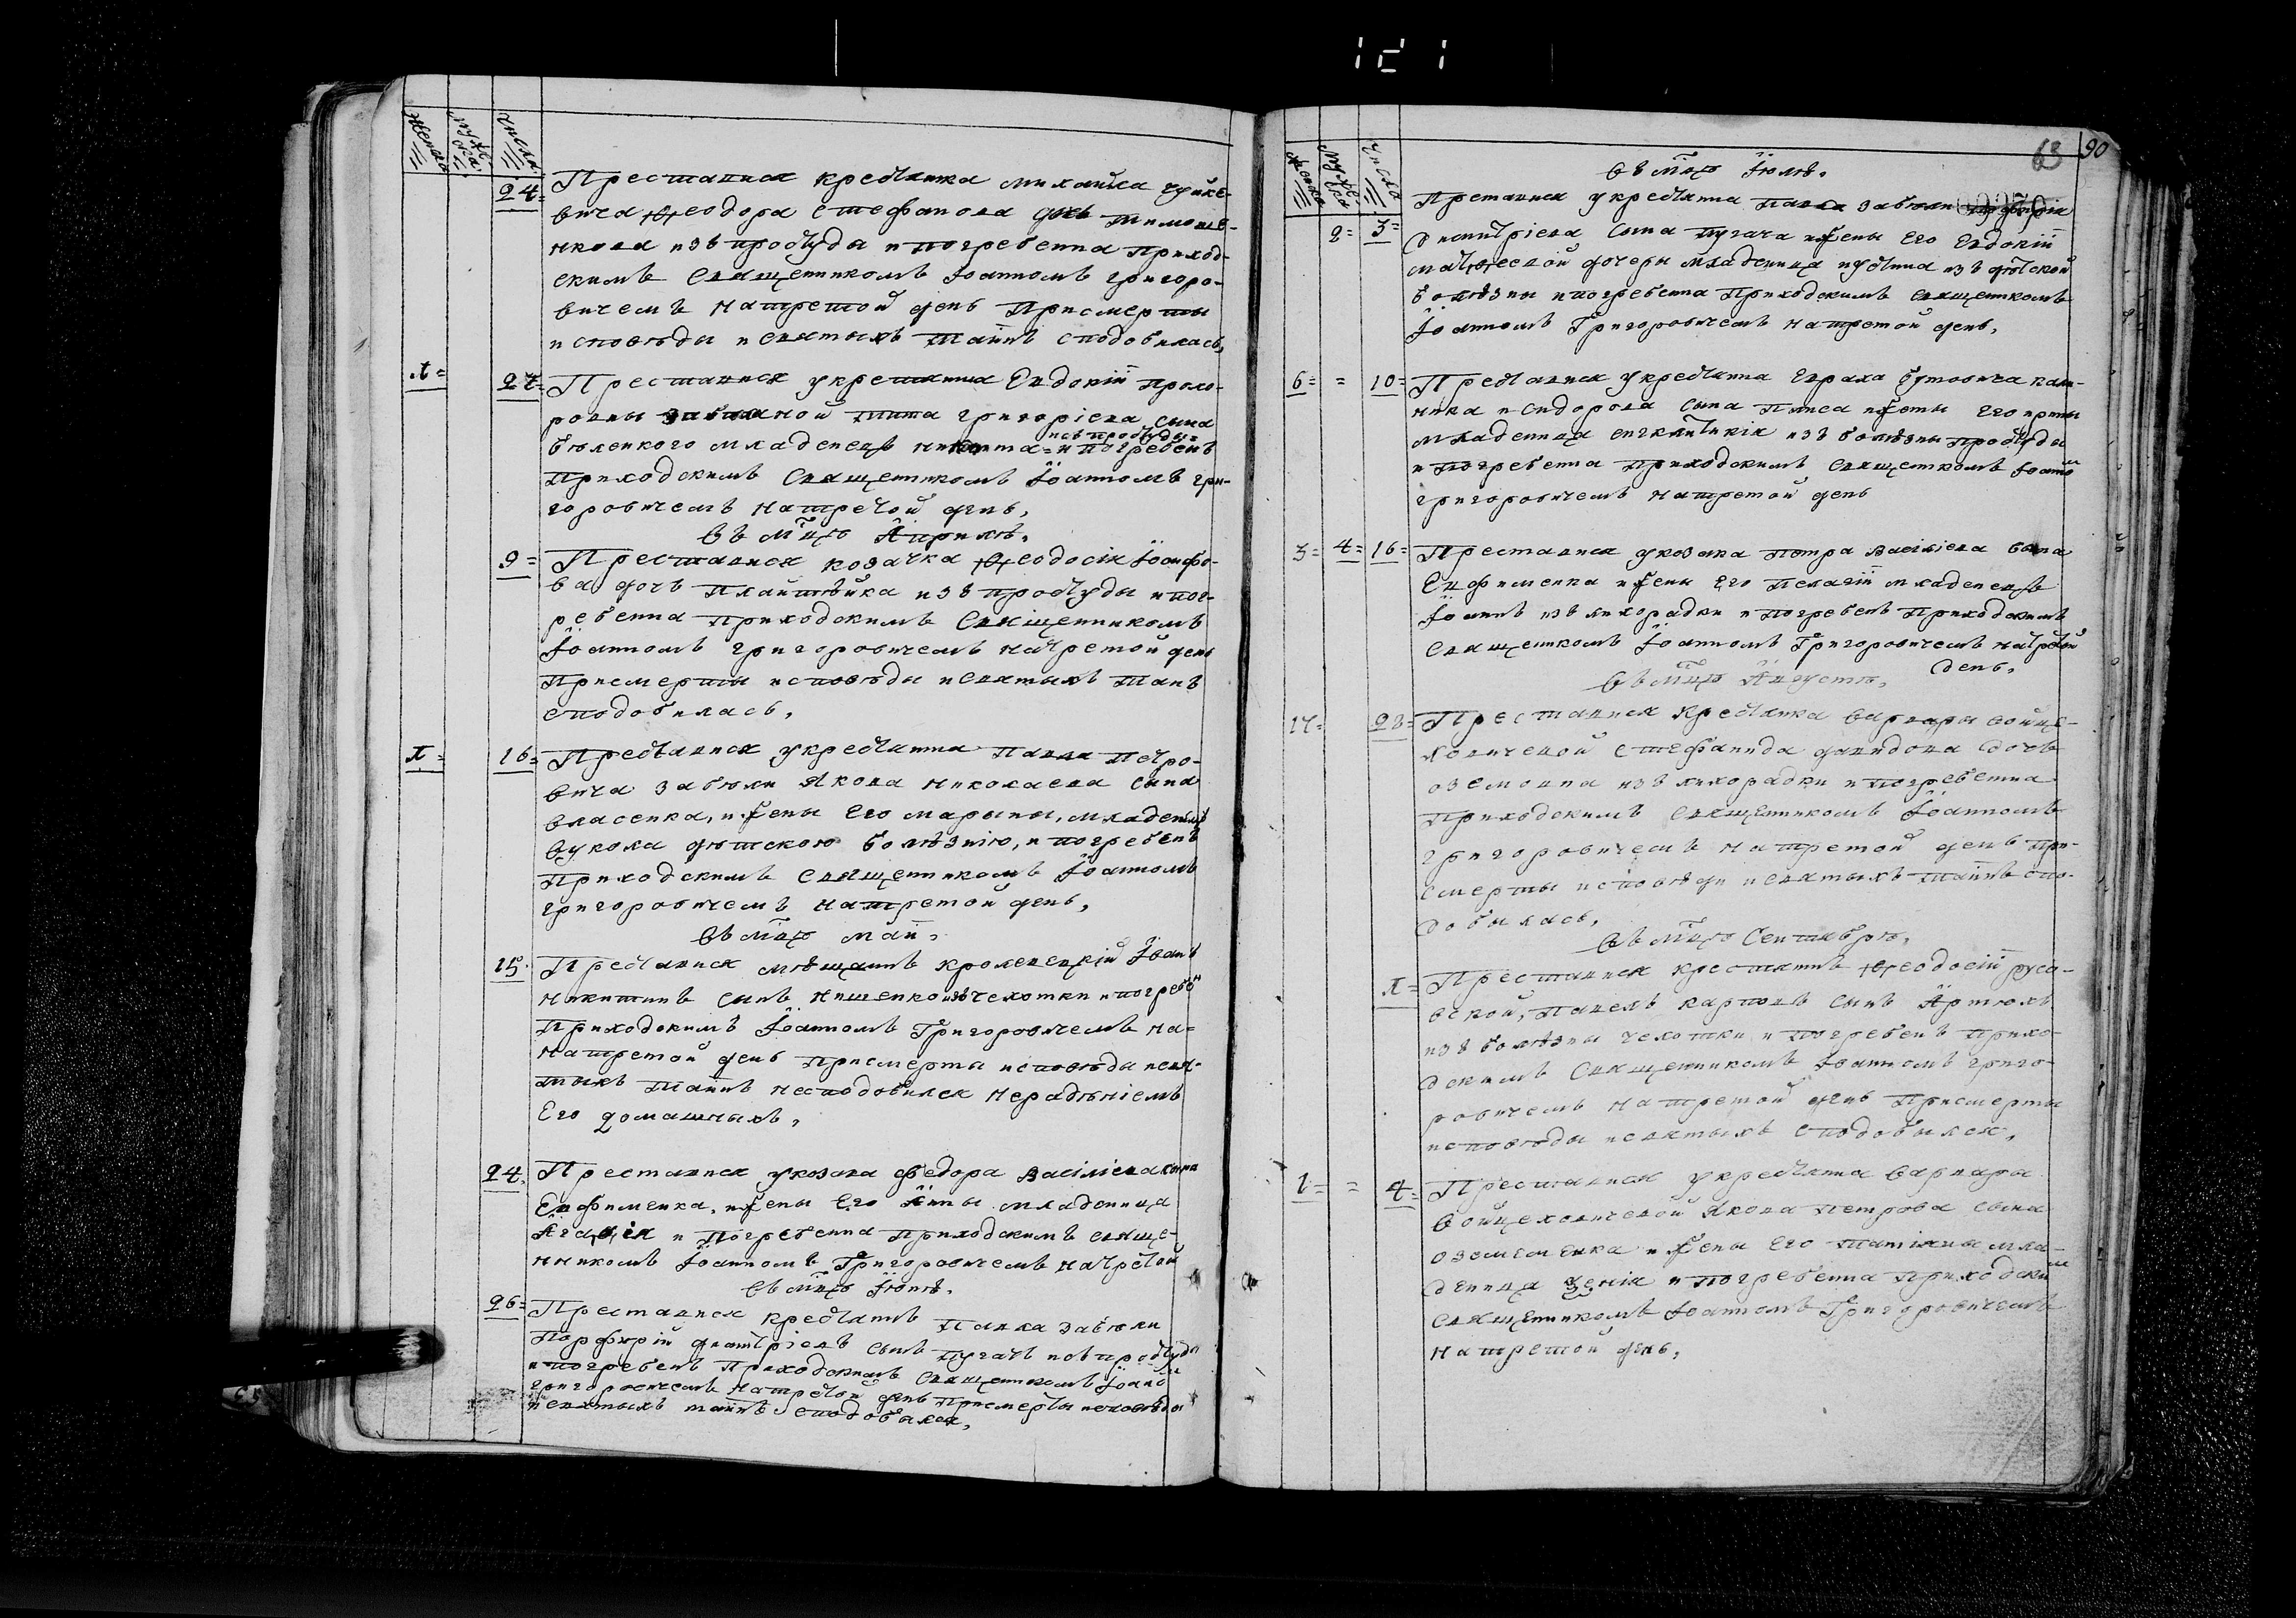 женска
мужес:
числа
24= Преставися крестянка михайла чуйке-
вича Ѳеодора стефанова дочъ тимоше-
нкова изъ простуды и погребенна приход-
скимъ священникомъ Іоанномъ григоро-
вичемъ натретой день присмерты
исповѣды исвятыхъ таинъ сподобилась,
1= 27= Преставися укрестянина Евдокіи прохо-
ровны забѣлиной тита григоріева сына
бѣленкого младенецъ никита изъ простуды= и погребенъ
приходскимъ священникомъ Іоанномъ гри-
горовичемъ натретой день,
въ мцѣ Априлѣ.
9= Преставися козачка Ѳеодосія Іосифо-
ва дочъ изъ простуды и пог-
ребенна приходскимъ священникомъ
Іоанномъ григоровичемъ натретой день
присмерты исповѣды исвятыхъ таинъ
сподобилась,
1= 16= Преставися укрестянина павла петро-
вича забѣли Якова николаева сына
власенка, ижены его марыны, младенецъ
вукола дѣтскою болѣзнію, и погребенъ
приходскимъ священникомъ Іоанномъ
григоровичемъ натретой день,
въ мцѣ маи,
15. Преставися мѣщанинъ кролевецкій Іванъ
никитинъ сынъ изъ чехотки и погребѣ
приходскимъ Іоанномъ Григоровичемъ на=
натретой день присмерты исповѣды исвя-
тыхъ таинъ несподобился нерадѣніемъ
Его домашныхъ,
24. Преставися укозака федора василіева сына
Евфименка, ижены Его Анны младеница
Агафія и погребенна приходскимъ свяще-
нникомъ Іоанномъ Григоровичемъ натретой
въ мцѣ Іюнѣ.
26= Преставися крестянинъ павла забѣли
порфирій димитріевъ сынъ пугачъ изъ простуды
и погребенъ приходскимъ священникомъ Іоанѡ
григоровичемъ натретой день присмерты исповѣды
исвятыхъ таинъ сподобился,
63 90
женска
мужес
число
въ мцѣ Іюлѣ.
Преставися укрестянина павла забѣли
2= 3= димитріева сына пугача ижены Его Евдокіи
матѳеевой дочери младеница изъ дѣтской
болѣзны и погребенна приходскимъ священникомъ
Іоанномъ Григоровичемъ натретой день,
6= = 10= Преставися укрестянина
и сидорова сына ижены Его
младеница изъ болѣзны простуды
и погребенна приходскимъ священникомъ Іоанно
григоровичемъ натретой день
3= 4= 16= Преставися укозака петра василіева сына
Евфименка ижены Его пелагіи младенецъ
Іоанъ изъ лихорадки и погребенъ приходскимъ
священникомъ Іоанномъ Григоровичемъ натретой
день,
въ мцѣ Августѣ,
17= 28= Преставися крестянка варвары войце-
ховичевой стефанида давидова дочъ
изъ лихорадки и погребенна
приходскимъ священникомъ Іоанномъ
григоровичемъ натретой день при-
смерты исповѣди исвятыхъ таинъ спо-
добилась,
въ мцѣ Сентябрѣ,
1= Преставися крестянинъ Ѳеодосіи руса-
вской, павелъ карповъ сынъ Артюхъ
изъ болѣзны чехотки и погребенъ прихо-
дскимъ священникомъ Іоанномъ григо-
ровичемъ натретой день присмерты
исповѣды исвятыхъ сподобился,
1= = 4= Преставися укрестянина варвары
войцеховичевой Якова петрова сына
ижены Его татіяны мла-
деница и погребенна приходски
священникомъ Іоанномъ Григоровичемъ
натретой день,